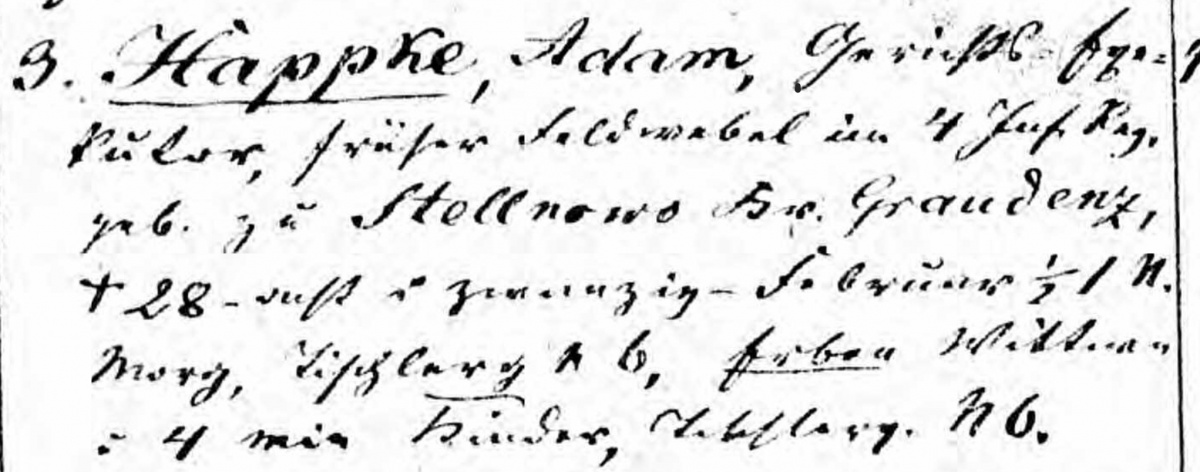 3. Happke, Adam, Gerichts-Exe-
kutor, früher Feldwebel im 4 Inf. Reg.
geb. zu Stellnowo Kr. Graudenz,
† 28 - acht & zwanzig - Februar ½ 1 N.
Morg, Tischlerg N 6, Erben Wittwe
& 4 min Kinder, Tischlerg. N 6.